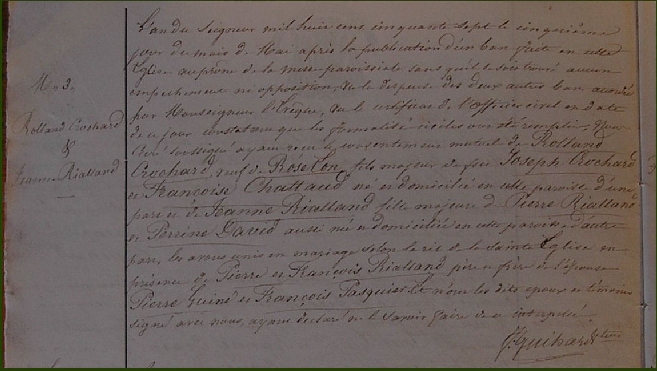 L'an du Seigneur mil huit cent cinquante sept le cinquième
jour du mois de Mai après la publication d'un ban faite en cette
Eglise au prône de la messe paroissiale sans qu'il se soit trouvé aucun
empêchement ni opposition, vu la dispense des deux autres bans accordée
par Monseigneur l'Evêque, vu le certificat de l'officier civil en date
de ce jour constatant que les formalités civiles ont été remplies, Nous
soussigné ayant reçu le consentement mutuel de Rolland
Crochard, veuf de Rose fils majeur de feu Joseph Crochard
et Françoise Chataud né et domicilié en cette paroisse d'une
part et de Jeanne Rialland fille majeure de Pierre Rialland
et Perrine David aussi née et domiciliée en cette paroisse d'autre
part, les avons unis en mariage selon le rit de la Sainte Eglise en
présence de Pierre et François Rialland père et frère de l'épouse
Pierre Guiné et François Pasquier Le dits époux et témoins
signé avec nous, ayant déclaré ne le savoir faire de ce interpellés
N. 3.
Rolland Crochard
&
Jeanne Rialland